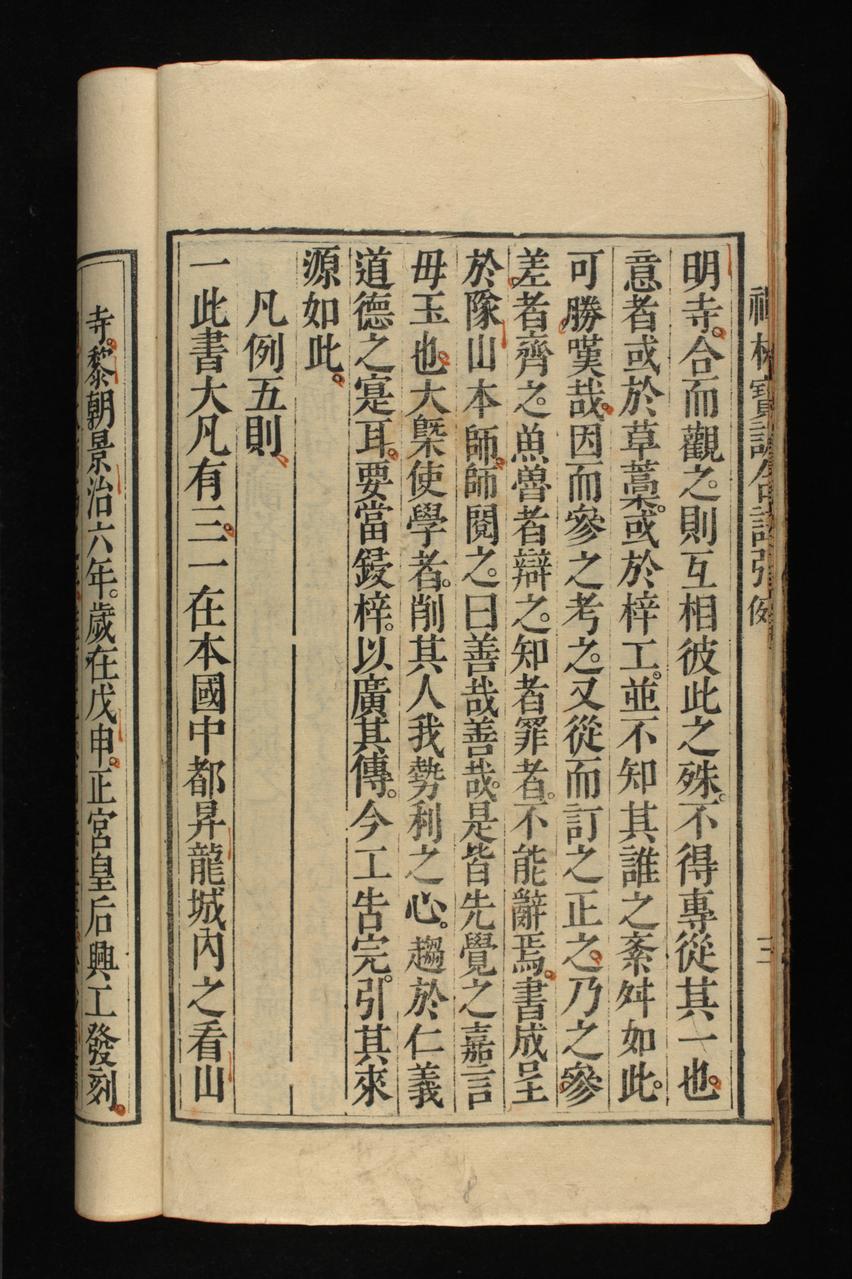 明寺。合而觀之。則互相彼此之殊。不得專從其一也。
意者或於草藁。或於梓工。並不知其誰之紊舛如此。
可勝嘆哉。因而參之考之。又從而訂之正之。乃之參
差者齊之。魚魯者辯之。知者罪者。不能辭焉。書成呈
於隊山本師。師閱之。曰善哉善哉。是皆先覺之嘉言
毋玉也。大槩使學者。削其人我勢利之心。趨於仁義
道德之寔耳。要當鋟梓。以廣其傳。今工告完。引其來
源如此。
凡例五則
一此書大凡有三。一在本國中都昇龍城內之看山
寺。黎朝景治六年。歲在戊申。正宮皇后興工發刻。
林寶訓合
三
8